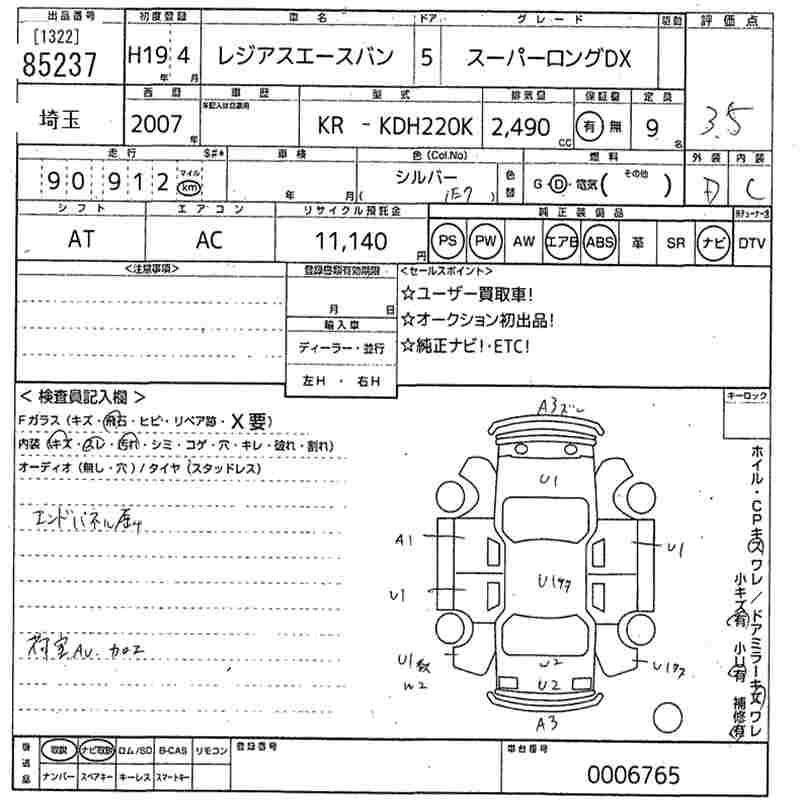 出品番号 初度登録 車名 ドア グレード 駆動 評価点
[1322]
85237 H19年 4月 レジアスエースバン 5 スーパーロングDX
3.5
埼玉 西暦 車歴 型式 排気量 保証書 定員
2007年 KR - KDH220K 2,490CC 有 無 9名
走行 車検 色(Col.No) 燃料 外装 内装
90912 マイル km 年 月 シルバー ( 1E7 ) 色替 G・D・電気( その他 ) D C
シフト エアコン リサイクル預託金 純正装備品
AT AC 11,140円 PS PW AW エアB ABS 革 SR ナビ DTV
<注意事項> 登録書類有効期限 <セールスポイント>
月 日 ☆ユーザー買取車!
輸入車 ☆オークション初出品!
ディーラー・並行 ☆純正ナビ!・ETC!
左H ・ 右H
<検査員記入欄> キーロック
Fガラス(キズ・飛石・ヒビ・リペア跡・X要)
内装(キズ・スレ・汚れ・シミ・コゲ・穴・キレ・破れ・割れ)
オーディオ(無し・穴)/タイヤ(スタッドレス)
エンドパネル
荷室AU. カロ
A3ズレ
U1
A1 U1
U1 U1
U1 U2 U1
W2 U2
A3
ホイル・CPキズワレ/ドアミラーキズワレ
小キズ有 小U有 補修有
後送品 取説 ナビ取説 ロム/SD B-CAS リモコン 登録番号 車台番号
ナンバー スペアキー キーレス スマートキー 0006765